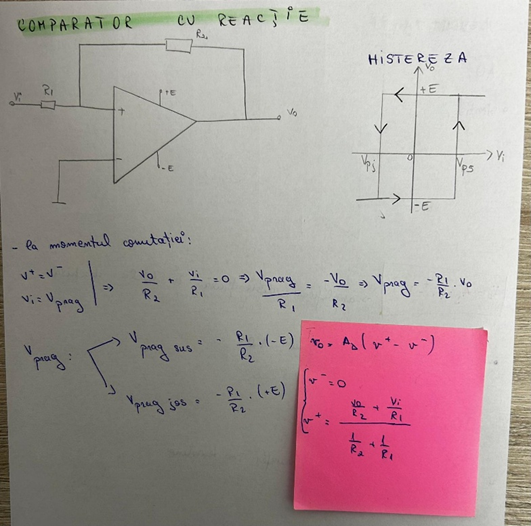 COMPARATOR CU REACȚIE
R₂
HISTEREZA
v₀
+E
Vi
R₁
+
+E
-
-E
v₀
Vpj
0
Vps
Vi
-E
- la momentul comutației:
v⁺=v⁻
vi=Vprag
⇒ v₀/R₂ + vi/R₁ = 0 ⇒ Vprag/R₁ = -V₀/R₂ ⇒ Vprag = -R₁/R₂ · v₀
Vprag:
Vprag sus = - R₁/R₂ · (-E)
Vprag jos = -R₁/R₂ · (+E)
v₀ = A₀ ( v⁺ - v⁻ )
v⁻ = 0
v⁺ = (v₀/R₂ + vi/R₁) / (1/R₂ + 1/R₁)